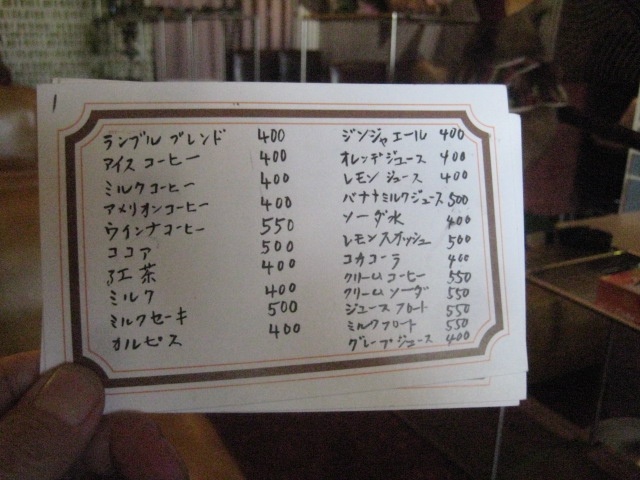 1
ランブル ブレンド 400
アイス コーヒー 400
ミルクコーヒー 400
アメリオンコーヒー 400
ウインナコーヒー 550
ココア 500
紅茶 400
ミルク 400
ミルクセーキ 500
カルピス 400
ジンジャエール 400
オレンヂジュース 400
レモン ジュース 400
バナナミルクジュース 500
ソーダ水 400
レモンスカッシュ 500
コカコーラ 400
クリームコーヒー 550
クリームソーダ 550
ジュースフロート 550
ミルクフロート 550
グレープジュース 400